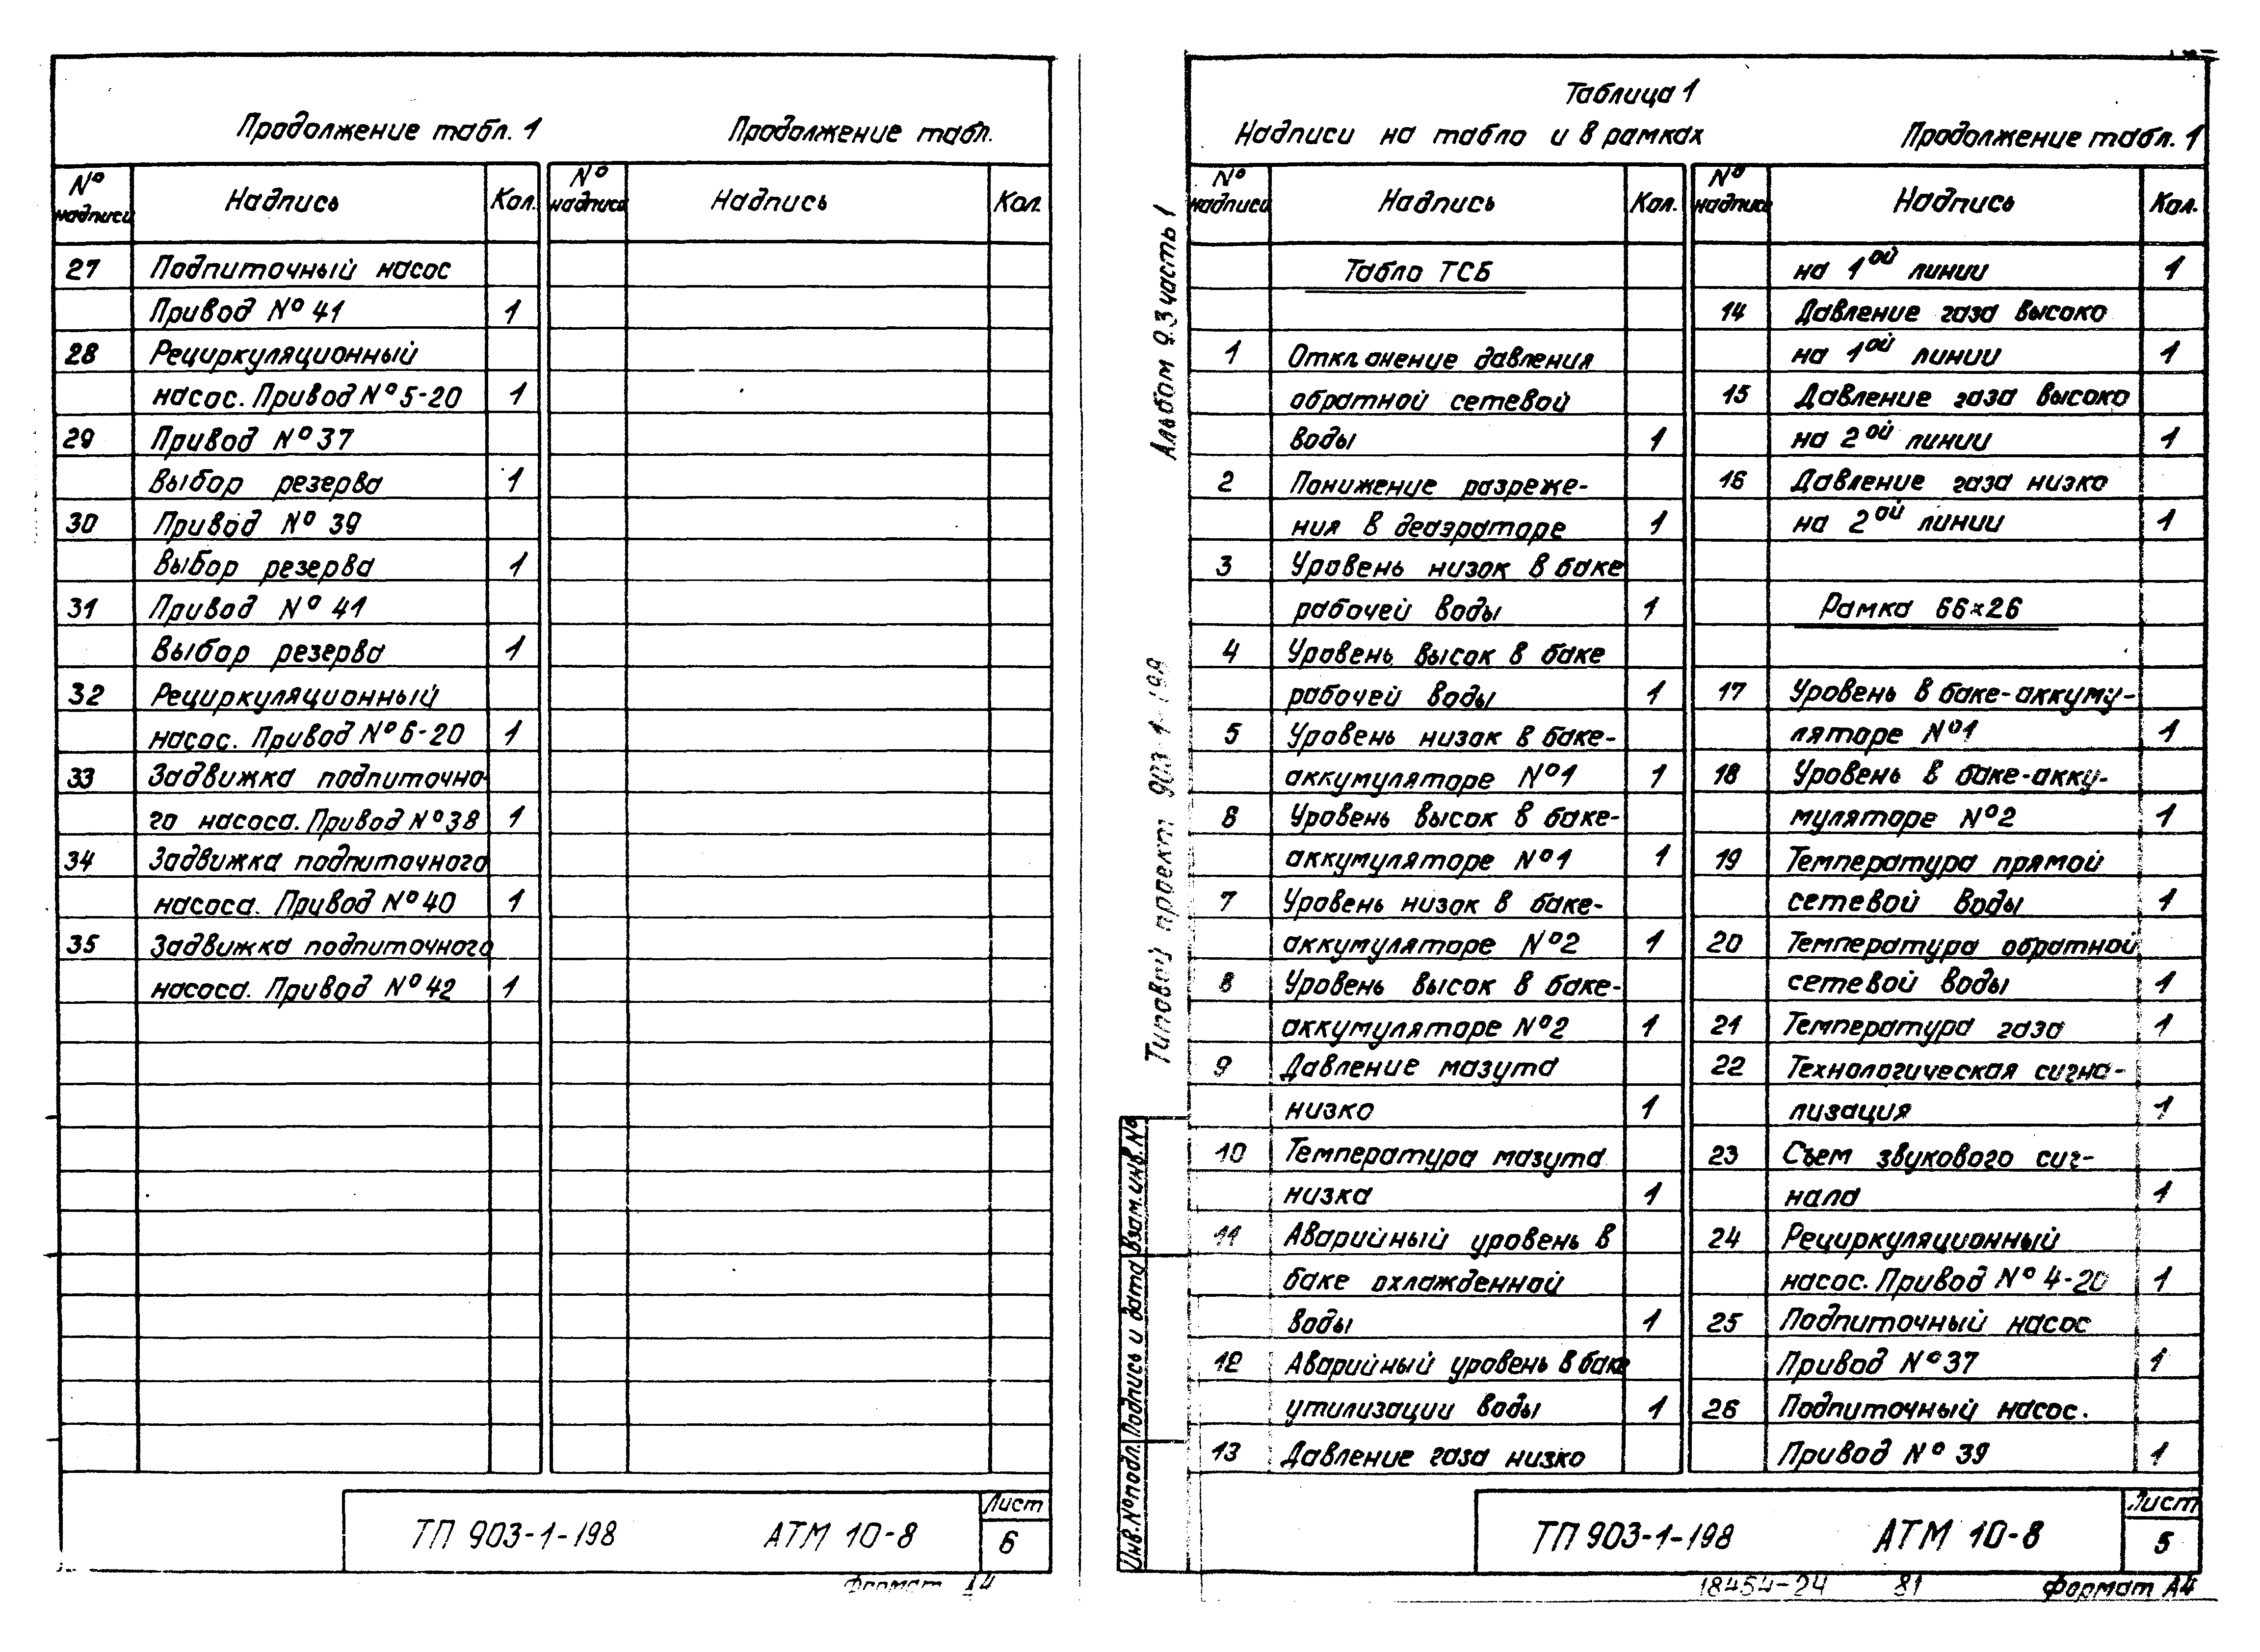 Продолжение табл. 1
Продолжение табл.
№ надписи Надпись Кол. № надписи Надпись Кол.
27 Подпиточный насос
Привод № 41 1
28 Рециркуляционный
насос. Привод № 5-20 1
29 Привод № 37
Выбор резерва 1
30 Привод № 39
Выбор резерва 1
31 Привод № 41
Выбор резерва 1
32 Рециркуляционный
насос. Привод № 6-20 1
33 Задвижка подпиточно-
го насоса. Привод № 38 1
34 Задвижка подпиточного
насоса. Привод № 40 1
35 Задвижка подпиточного
насоса. Привод № 42 1
ТП 903-1-198 АТМ 10-8
Лист
6
Формат А4
Альбом 9.3 часть 1
Типовой проект 903-1-198
Взам. инв. №
Подпись и дата
Инв. № подл.
Таблица 1
Надписи на табло и в рамках
№ надписи Надпись Кол.
Табло ТСБ
1 Отклонение давления
обратной сетевой
воды 1
2 Понижение разреже-
ния в деаэраторе 1
3 Уровень низок в баке
рабочей воды 1
4 Уровень высок в баке
рабочей воды 1
5 Уровень низок в баке-
аккумуляторе №1 1
6 Уровень высок в баке-
аккумуляторе №1 1
7 Уровень низок в баке-
аккумуляторе №2 1
8 Уровень высок в баке-
аккумуляторе №2 1
9 Давление мазута
низко 1
10 Температура мазута
низка 1
11 Аварийный уровень в
баке охлажденной
воды 1
12 Аварийный уровень в баке
утилизации воды 1
13 Давление газа низко
Продолжение табл. 1
№ надписи Надпись Кол.
на 1ой линии 1
14 Давление газа высоко
на 1ой линии 1
15 Давление газа высоко
на 2ой линии 1
16 Давление газа низко
на 2ой линии 1
Рамка 66×26
17 Уровень в баке-аккуму-
ляторе №1 1
18 Уровень в баке-акку-
муляторе №2 1
19 Температура прямой
сетевой воды 1
20 Температура обратной
сетевой воды 1
21 Температура газа 1
22 Технологическая сигна-
лизация 1
23 Съем звукового сиг-
нала 1
24 Рециркуляционный
насос. Привод № 4-20 1
25 Подпиточный насос
Привод № 37 1
26 Подпиточный насос.
Привод № 39 1
ТП 903-1-198 АТМ 10-8
Лист
5
18454-24 81 Формат А4